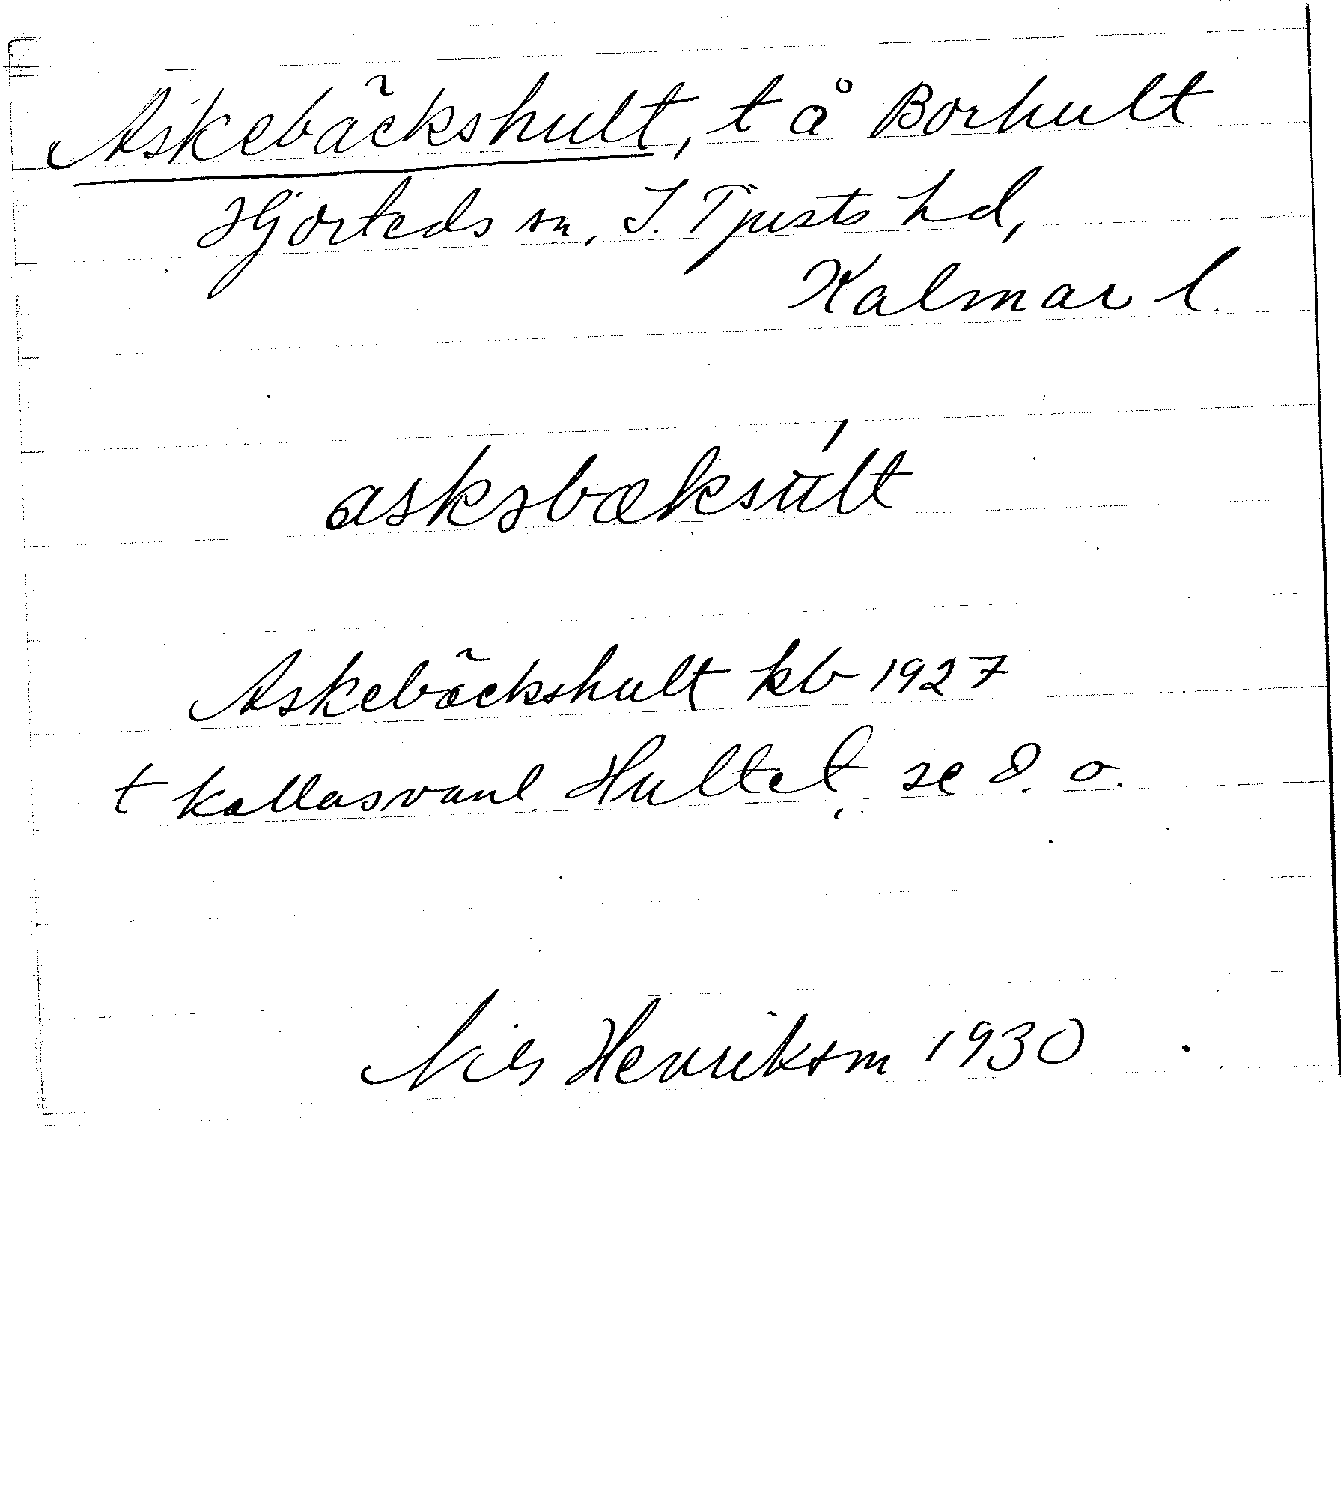 Askebäckshult, t å Borhult
Hjorteds sn, S. Tjusts hd,
Kalmar l.
askəbæksúlt
Askebäckshult kb 1927
t kallas vanl Hultet, se d. o.
Nils Henriksson 1930